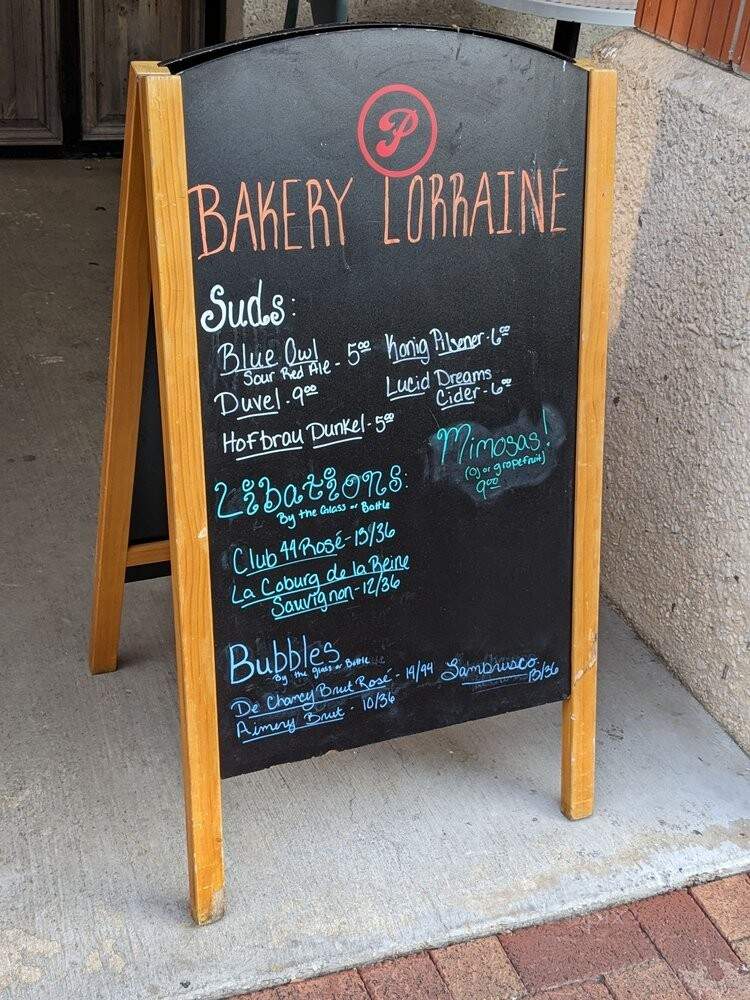 P
BAKERY LORRAINE
Suds:
Blue Owl
Sour Red Ale - 5.00
Duvel - 9.00
Hofbrau Dunkel - 5.00
Konig Pilsener - 6.00
Lucid Dreams
Cider - 6.00
Mimosas!
(OJ or grapefruit)
9.00
Libations:
By the Glass or Bottle
Club 44 Rosé - 13/36
La Coburg de la Reine
Sauvignon - 12/36
Bubbles
By the glass or Bottle
De Chancy Brut Rosé - 14/44
Aimery Brut - 10/36
Lambrusco
13/36